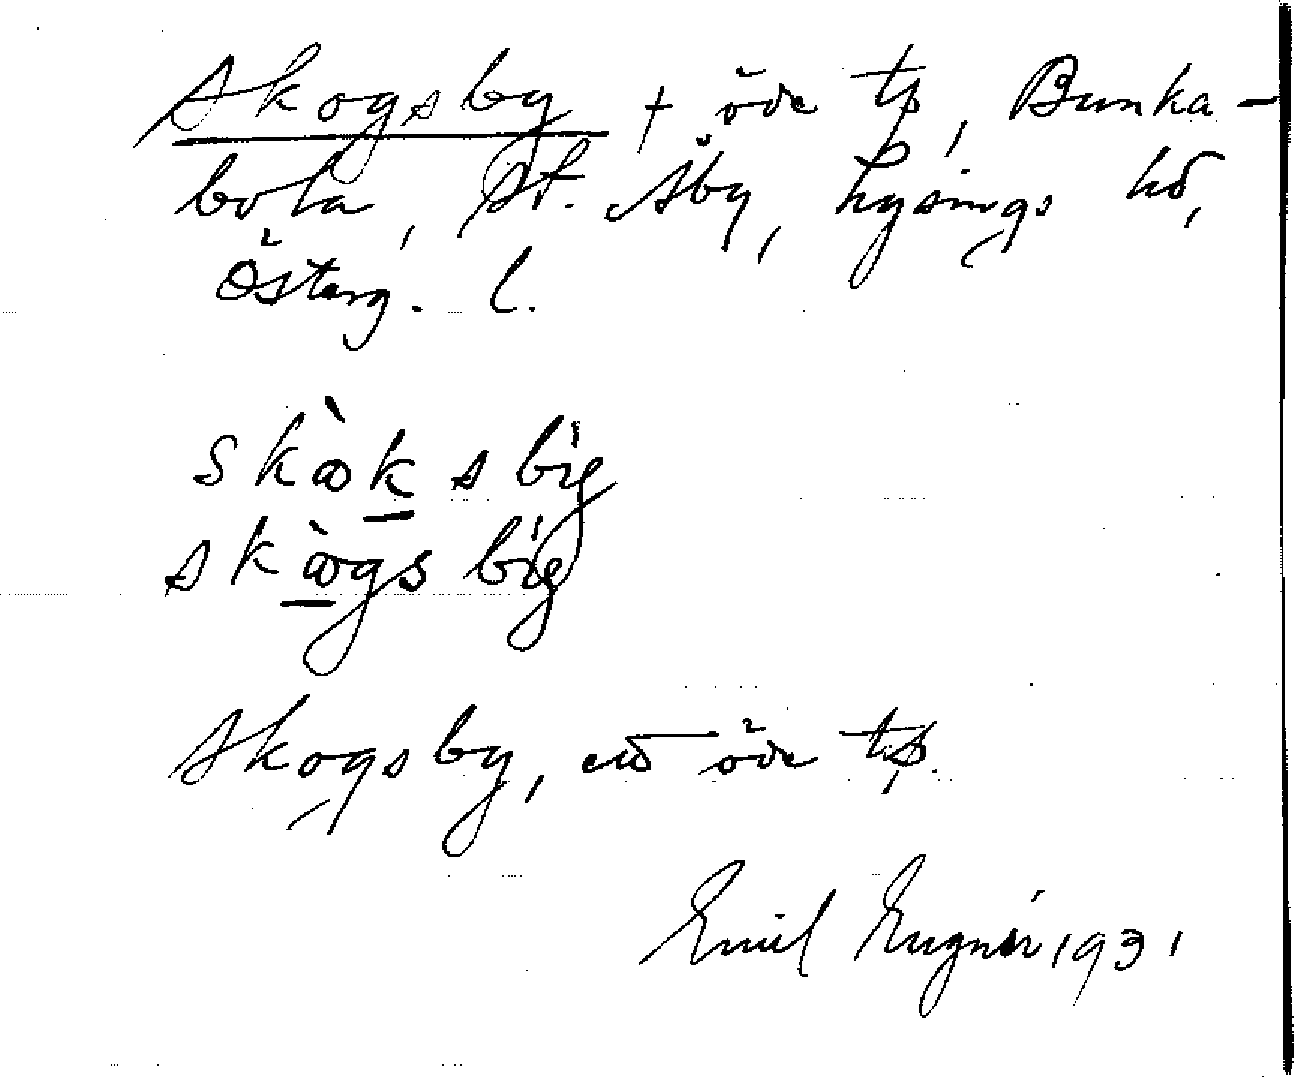 Skogsby + öde tp, Bunka-
bola, St. Åby, Lysings hd,
Österg. l.
skàksbý
skàgsbý
Skogsby, öde tp.
Emil Eugnér 1931